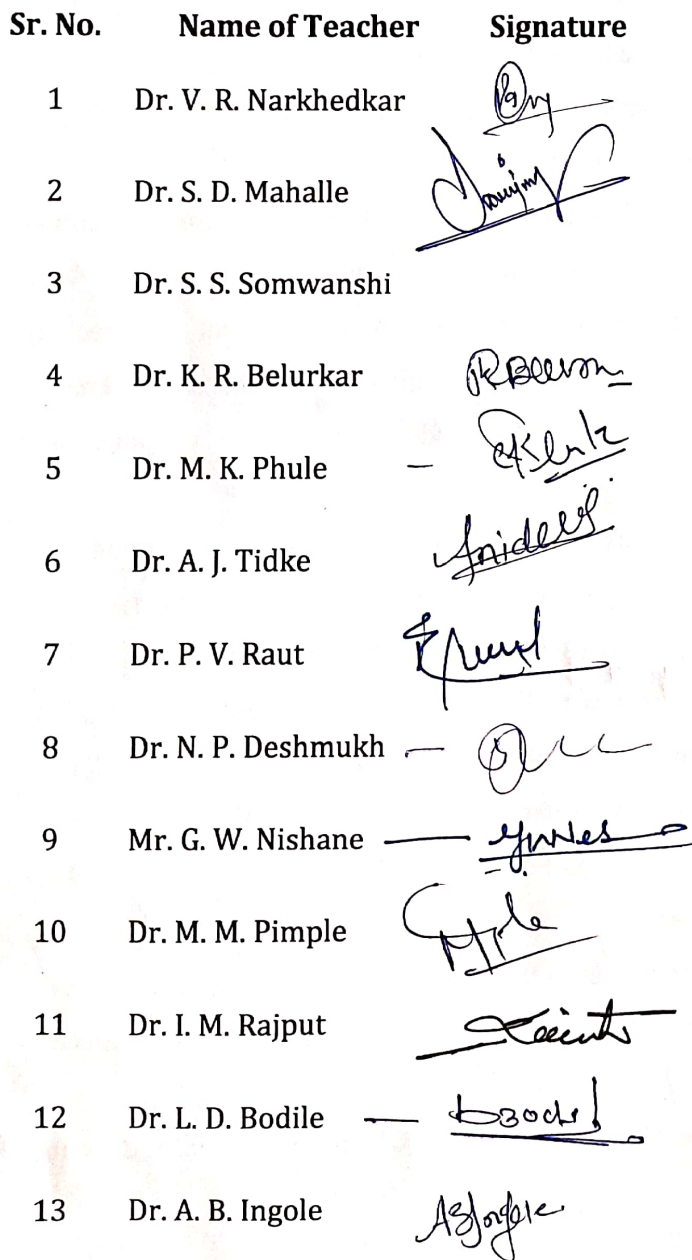 Sr. No. Name of Teacher Signature
1 Dr. V. R. Narkhedkar
2 Dr. S. D. Mahalle
3 Dr. S. S. Somwanshi
4 Dr. K. R. Belurkar
5 Dr. M. K. Phule
6 Dr. A. J. Tidke
7 Dr. P. V. Raut
8 Dr. N. P. Deshmukh
9 Mr. G. W. Nishane
10 Dr. M. M. Pimple
11 Dr. I. M. Rajput
12 Dr. L. D. Bodile
13 Dr. A. B. Ingole